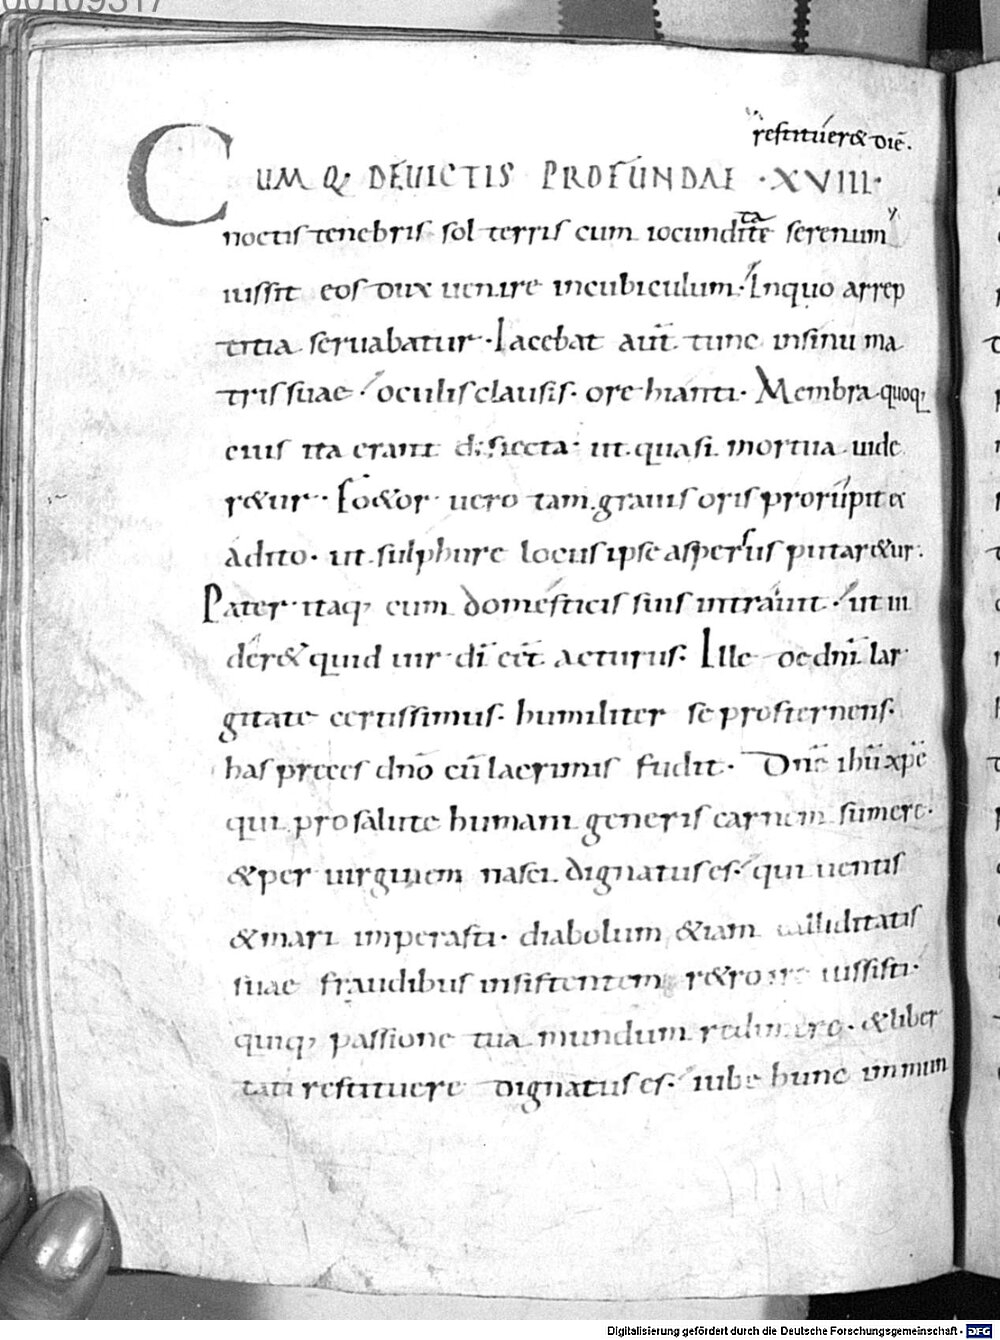 00109317
restituer& diē.
CUMQ· DEUICTIS PROFUNDAE ·XVIII·
noctis tenebris sol terris cum iocunditate serenum
iussit eos dux uenire incubiculum· Inquo arrep
titia seruabatur· Iacebat aūt tunc insinu ma
tris suae· oculis clausis· ore hianti· Membra quoq;
eius ita erant dissecta· ut quasi mortua uide
r&ur· Fo&or uero tam grauis oris prorūpit ex
adito· ut sulphure locus ipse aspersus putar&ur·
Pater itaq; cum domesticis suis intrauit· ut ui
der& quid uir dī eēt acturus· Ille de dnī lar
gitate certissimus· humiliter se prosternens·
has preces dnō cū lacrimis fudit· Dnē ihū xpē
qui pro salute humani generis carnem sumere·
& per uirginem nasci dignatus es· qui uentis
& mari imperasti· diabolum &iam calliditatis
suae fraudibus insistentem r&ro ire iussisti·
quiq; passione tua mundum redimere· & liber
tati restituere dignatus es· iube hunc inmun
Digitalisierung gefördert durch die Deutsche Forschungsgemeinschaft - DFG